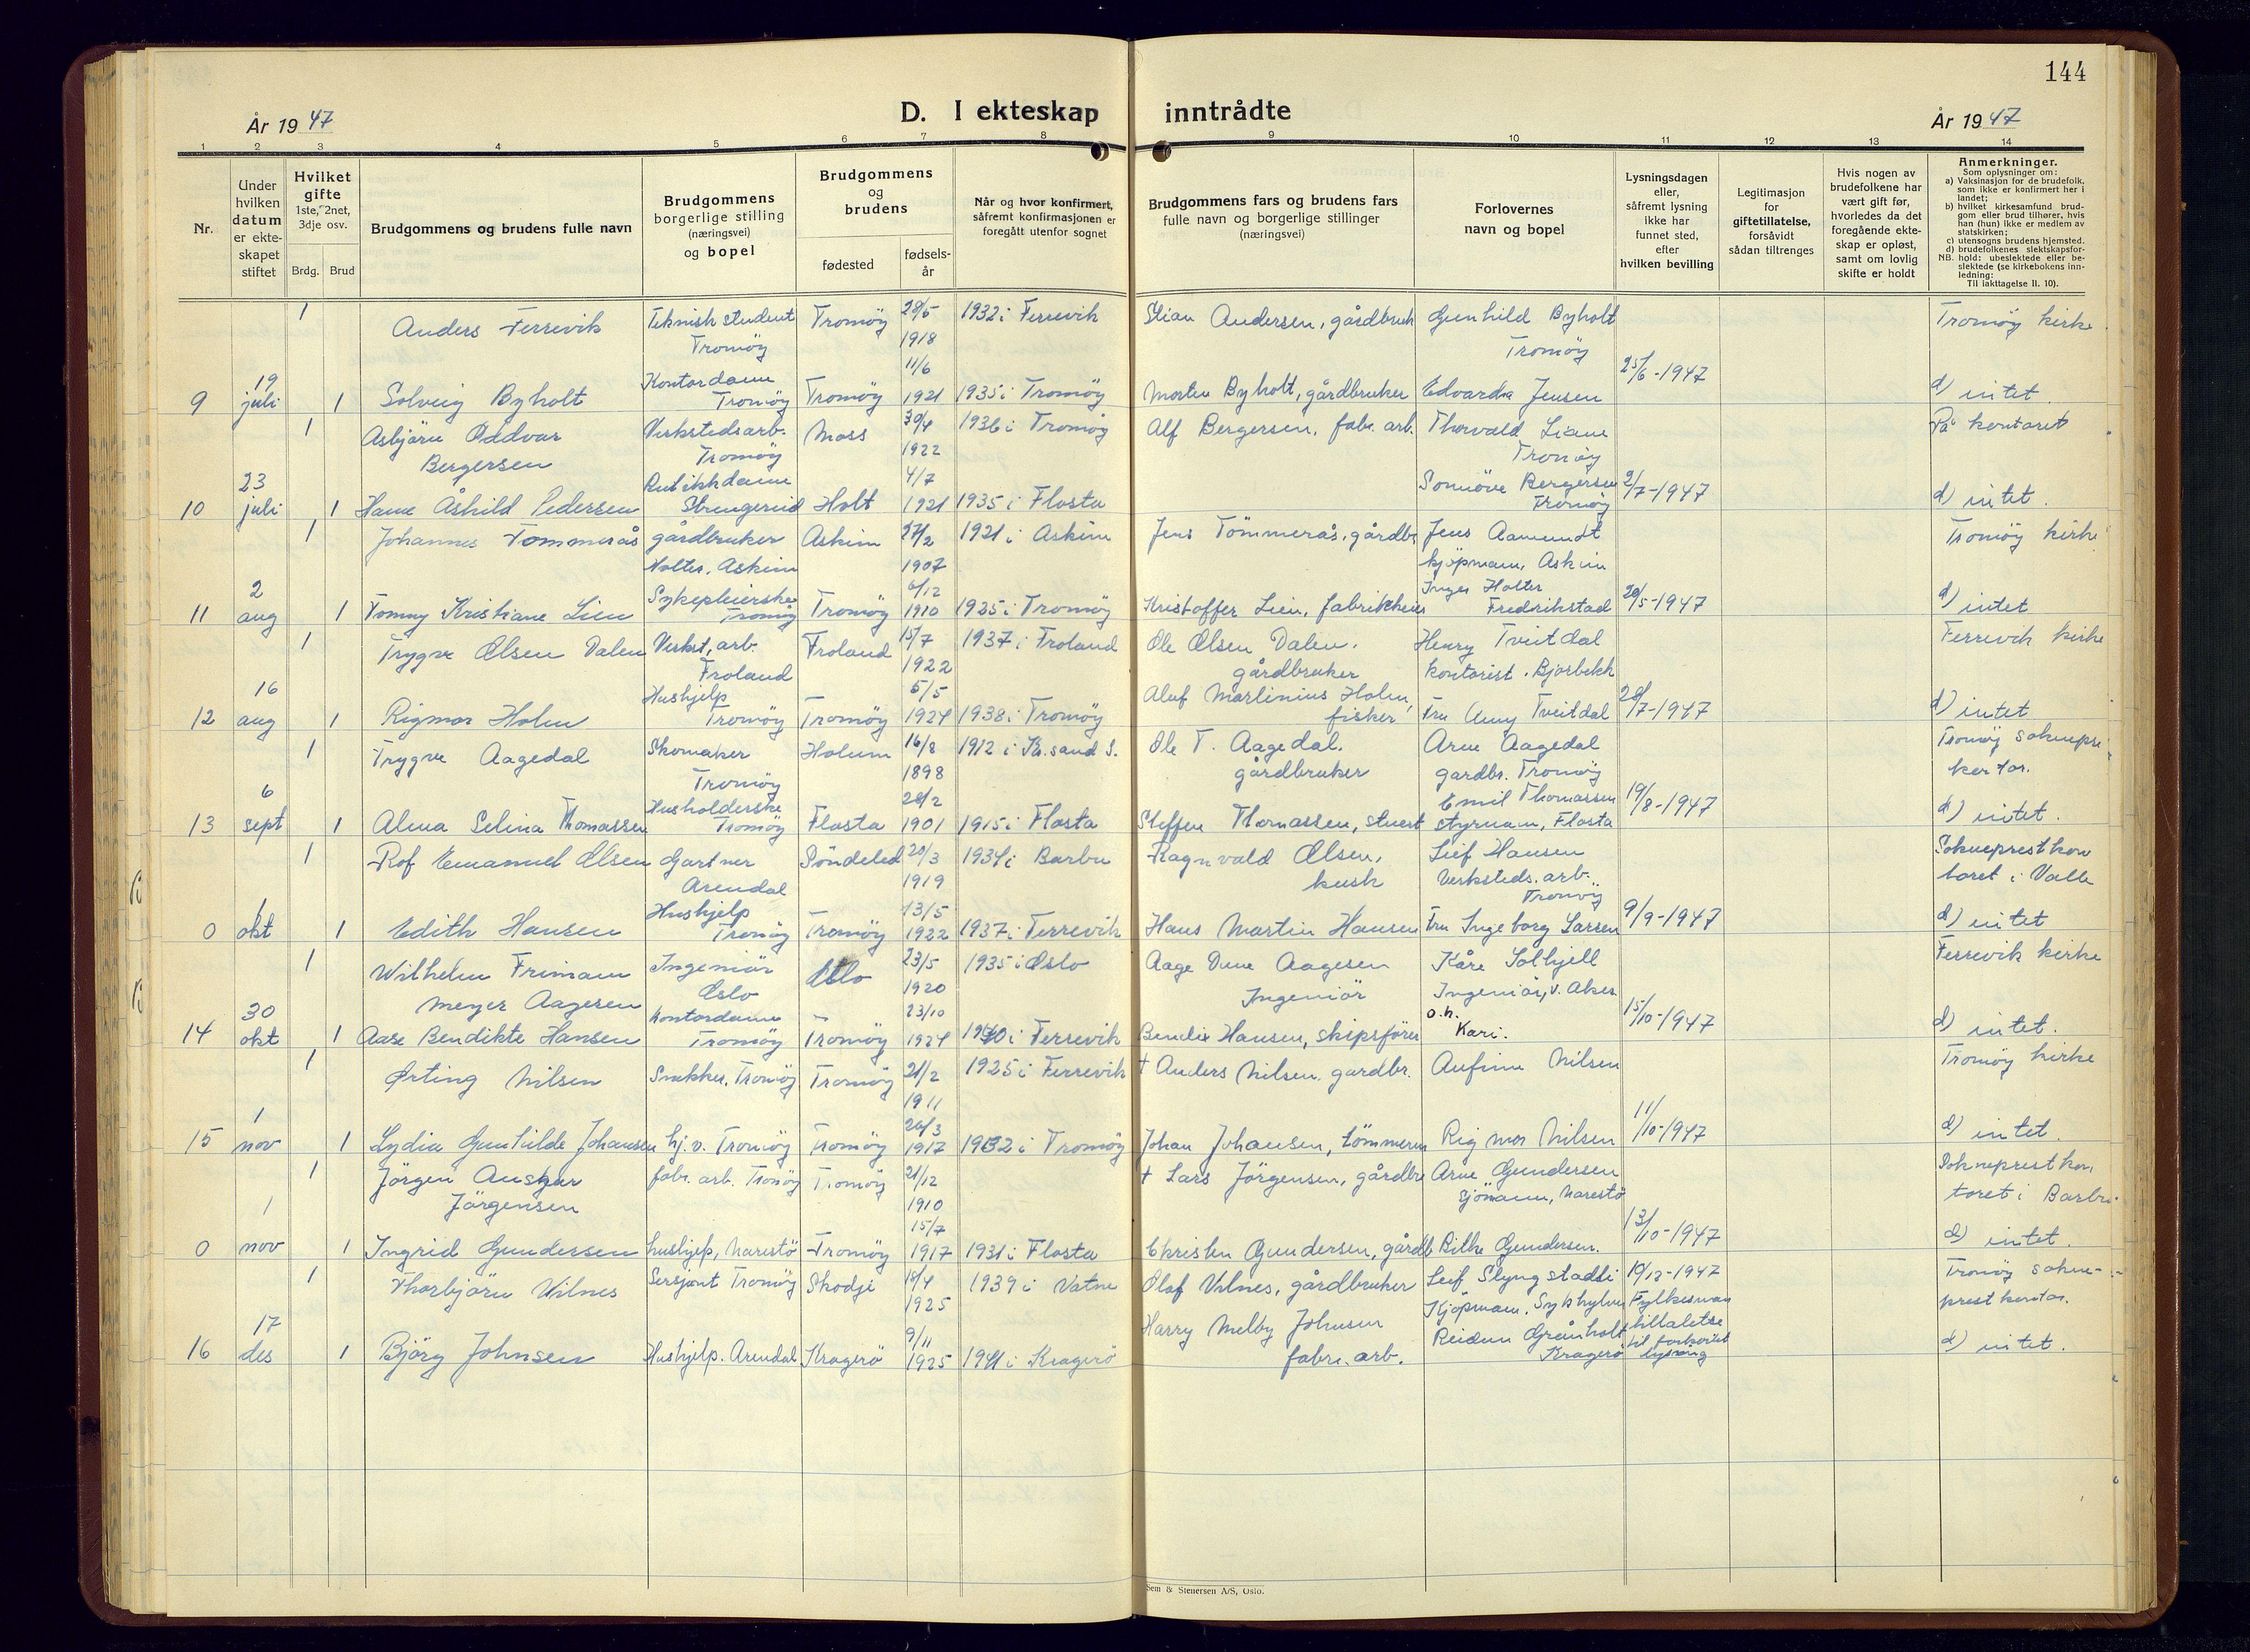 144
År 1947
D. I ekteskap inntrådte
År 1947
1 2 3 4 5 6 7 8 9 10 11 12 13 14
Nr.
Under hvilken datum er ekte-skapet stiftet
Hvilket gifte 1ste, 2net, 3dje osv.
Brdg. Brud
Brudgommens og brudens fulle navn
Brudgommens borgerlige stilling (næringsvei) og bopel
Brudgommens og brudens
fødested
fødsels-år
Når og hvor konfirmert, såfremt konfirmasjonen er foregått utenfor sognet
Brudgommens fars og brudens fars fulle navn og borgerlige stillinger (næringsvei)
Forlovernes navn og bopel
Lysningsdagen eller, såfremt lysning ikke har funnet sted, efter hvilken bevilling
Legitimasjon for giftetillatelse, forsåvidt sådan tiltrenges
Hvis nogen av brudefolkene har vært gift før, hvorledes da det foregående ekte-skap er opløst, samt om lovlig skifte er holdt
Anmerkninger.
Som oplysninger om:
a) Vaksinasjon for de brudefolk, som ikke er konfirmert her i landet;
b) hvilket kirkesamfund brud-gom eller brud tilhører, hvis han (hun) ikke er medlem av statskirken;
c) utensogns brudens hjemsted.
d) brudefolkenes slektskapsfor-hold: ubeslektede eller be-slektede (se kirkebokens inn-ledning:
NB.
Til iakttagelse II. 10).
1 Anders Færvik Teknisk student Tromøy Tromøy 28/5 1918 1932 i Færvik Andersen, gårdbruk Gunhild Byholt Tromøy Tromøy kirke
9 19 juli 1 Solveig Byholt Kontordame Tromøy Tromøy 11/6 1921 1935 i Tromøy Morten Byholt, gårdbruker Edvarda Jensen 25/6-1947 d) intet.
1 Asbjørn Oddvar Bergersen Verkstedsarb. Tromøy Moss 30/4 1922 1936 i Tromøy Alf Bergersen, fabr. arb. Thorvald Liane Tromøy På kontoret
10 23 juli 1 Åshild Pedersen Butikkdame Strengereid Holt 4/7 1921 1935 i Flosta Bergersen Tromøy 2/7-1947 d) intet.
1 Johannes Tømmerås gårdbruker Holter, Askim Askim 27/2 1907 1921 i Askim Jens Tømmerås, gårdbr Jens Aamundt kjøpmann, Askim Tromøy kirke
11 2 aug 1 Tommy Kristiane Lien Sykepleierske Tromøy Tromøy 6/12 1910 1925 i Tromøy Kristoffer Lien, fabrikkeier Inger Holter Fredrikstad 20/5-1947 d) intet
1 Trygve Olsen Dalen Verkst, arb. Froland Froland 15/7 1922 1937 i Froland Ole Olsen Dalen. gårdbruker Henry Tveitdal kontorist. Bjorbekk Færvik kirke
12 16 aug 1 Rigmor Holm Hushjelp Tromøy Tromøy 5/5 1924 1938 i Tromøy Olaf Martinius Holm, fisker Fru Amy Tveitdal 28/7-1947 d) intet
1 Trygve Aagedal Skomaker Tromøy Holum 16/8 1898 1912 i Kr.sand S. Ole T. Aagedal. gårdbruker Arne Aagedal gardbr. Tromøy Tromøy soknepr kontor.
13 6 sept 1 Alma Selina Thomassen Husholderske Tromøy Flosta 28/2 1901 1915 i Flosta Steffen Thomassen, stuert Emil Thomassen styrmann, Flosta 19/8-1947 d) intet.
1 Rolf Emanuel Olsen Gartner Arendal Søndeled 20/3 1919 1934 i Barbu Ragnvald Olsen, kusk Leif Hansen Verksteds. arb. Tromøy Sokneprestkontoret i Valle
0 1 okt 1 Edith Hansen Hushjelp Tromøy Tromøy 13/5 1922 1937 i Færvik Hans Martin Hansen Fru Ingeborg Larsen 9/9-1947 d) intet
1 Wilhelm Frimann Meyer Aagesen Ingeniør Oslo Oslo 23/5 1920 1935 i Oslo Aage Dune Aagesen Ingeniør Kåre Solhjell Ingeniør, V. Aker. Færvik kirke
14 30 okt 1 Aase Bendikte Hansen Kontordame Tromøy Tromøy 23/10 1924 1940 i Færvik Bendix Hansen, skipsfører o.h. Kari. 15/10-1947 d) intet.
1 Ørting Nilsen Snekker, Tromøy Tromøy 21/2 1911 1925 i Færvik † Anders Nilsen. gardbr. Anfinn Nilsen Tromøy kirke
15 1 nov 1 Lydia Gunhilde Johansen hj.v. Tromøy Tromøy 20/3 1917 1932 i Tromøy Johan Johansen, tømmerm Rigmor Nilsen 11/10-1947 d) intet.
1 Jørgen Ansgar Jørgensen fabr. arb. Tromøy Tromøy 21/12 1910 † Lars Jørgensen, gårdbr Arne Gundersen Sjømann, Narestø Sokneprestkontoret i Barbu
0 1 nov 1 Ingrid Gundersen hushjelp, Narestø Tromøy 15/7 1917 1931 i Flosta Christen Gundersen, gårdb Gundersen. 13/10-1947 d) intet
1 Thorbjørn Vilnes Sersjant Tromøy Skodje 18/4 1925 1939 i Vatne Olaf Vilnes, gårdbruker Leif Slyngstadli Kjøpmann. Sykkylven 10/12-1947 Fylkesmann Tromøy sokneprestkontor.
16 17 des 1 Bjørg Johnsen Hushjelp. Arendal Kragerø 9/11 1925 1941 i Kragerø Harry Melby Johnsen fabr. arb. Reidun Grønholt Kragerø tillatelse til forkortet lysning d) intet.
Sem & Stenersen A/S, Oslo.